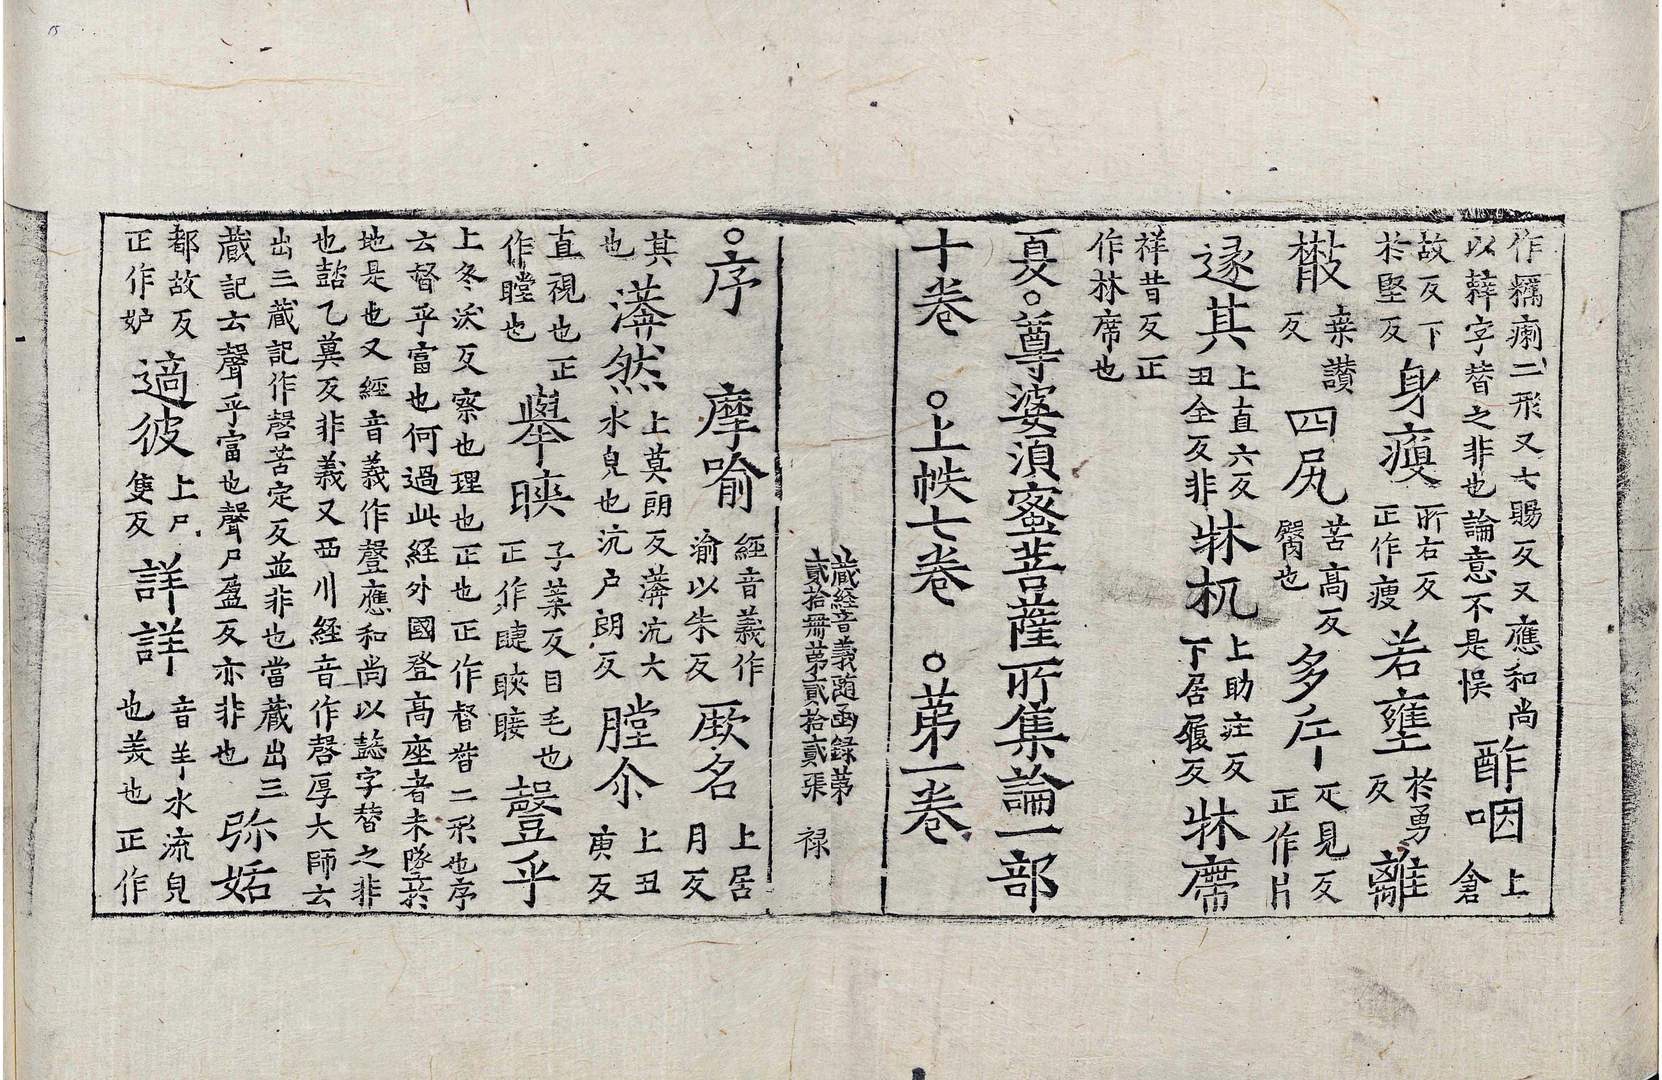 作癘瘌二形又七賜反又應和尚
以辢字替之非也論意不是悮 酢咽 上倉
故反下
於堅反 身瘦 所右反
正作瘦 若壅 於勇
反 離
㪚 桒讃
反 四尻 苦高反
臋也 多斤 疋見反
正作片
逐其 上直六反
丑全反非 牀机 上助庄反
下居履反 牀席
祥昔反正
作牀席也
夏○尊婆須蜜菩薩所集論一部
十卷 ○上帙七卷 ○第一卷
藏経音義隨函録第
貳拾冊第貳拾貳張 禄
○序 摩喻 經音義作
渝以朱反 厥名 上居
月反
其
也 漭然 上莫朗反漭沆大
水皃也沆户朗反 瞠尒 上丑
庚反
直視也正
作瞠也 舉䀹 子葉反目毛也
正作睫䀹 聲乎
上冬沃反察也理也正也正作督二形也序
云督乎富也何過此經外國登高座者未墜於
地是也又經音義作聲應和尚以懿字替之非
也懿乙冀反非義又西川經音作罄厚大師云
出三藏記作罄苦定反並非也當藏出三
藏記云聲乎富也聲尸盈反亦非也 弥姤
都故反
正作妒 適彼 上尸
隻反 詳詳 音羊水流皃
也美也正作